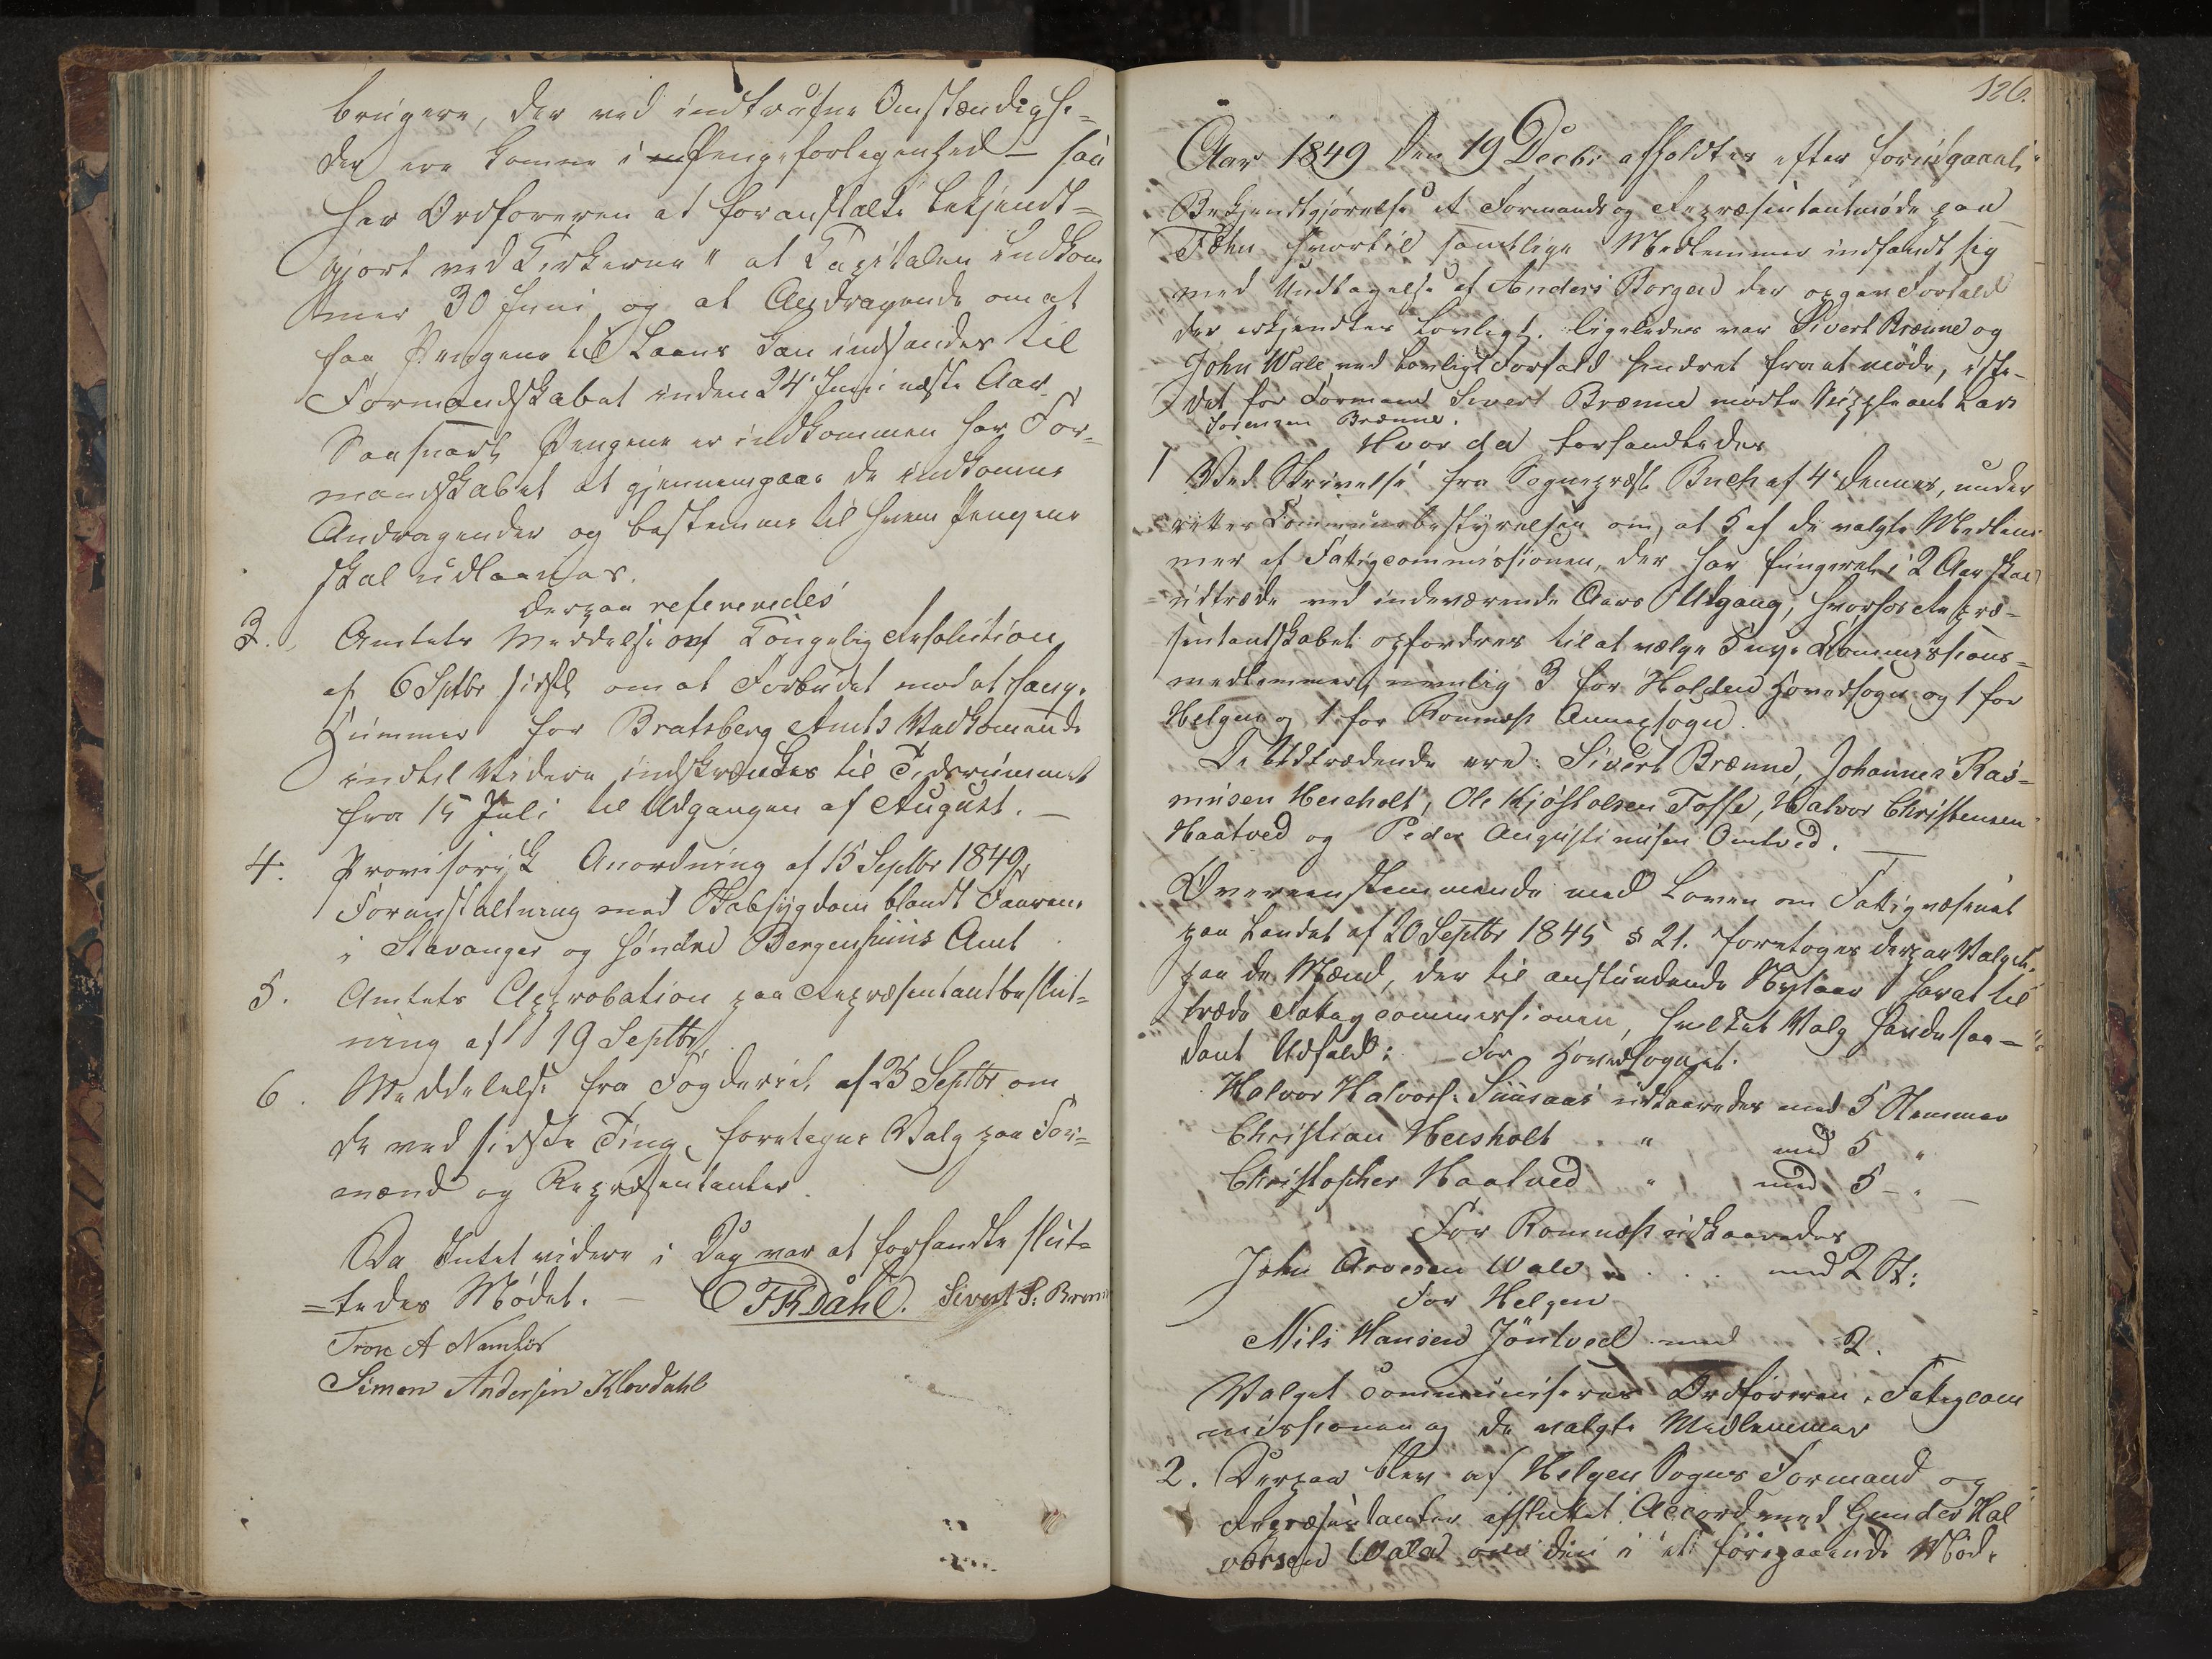 brugere, der ved indtrufne Omstændighe=
der ere komne i Pengeforlegenhed – saa
har Ordføreren at foranstalte bekjendt=
gjort ved Kirkerne "at Kapitalen indkom
mer 30 Juni og at Andragende om at
faa Pengene til Laans kan indsendes til
Formandskabet inden 24 Juni næste Aar.
Saasnart Pengene er indkommen har For=
mandskabet at gjennemgaae de indkomne
Andragender og bestemme til hvem Pengene
skal udlaanes.
Derpaa refereredes
3. Amtets Meddelelse om Kongelig Resolution
af 6 Septbr sidstl. om at Forbudet mod at fange
Hummer for Bratsberg Amts Vedkomende
indtil Videre indskrænkes til Tidsrummet
fra 15 Juli til Udgangen af August. –
4. Provisorisk Anordning af 15 Septbr 1849,
Foranstaltning mod Skabsygdom blandt Faarene
i Stavanger og Søndre Bergenhuus Amt
5. Amtets Approbation paa Repræsentantbeslut=
ning af 19 Septbr
6. Meddelelse fra Fogderiet af 25 Septbr om
de ved sidste Ting foretagne Valg paa For=
mænd og Repræsentanter.
Da Intet videre i Dag var at forhandle slut=
=tedes Mødet. – Dahl. Sivert S.
Simon Andersen Klovdahl
126.
Aar 1849 den 19 Decbr afholdtes efter forudgaaende
Bekjendtgjørelse et Formands og Repræsentantmøde paa
hvortil samtlige Medlemmer indfandt sig
med Undtagelse af Anders Borgen der opgav Forfald
der erkjendtes lovligt. ligeledes var Sivert Brenne og
John Wale ved lovligt Forfald hindret fra at møde, iste=
det for Formand Sivert Brenne mødte Suppleant Lars
Sørensen Brenne.
Hvor da forhandledes
1 Ved Skrivelse fra Sognepræst Buch af 4 dennes, under
rettes Communebestyrelsen om, at 5 af de valgte Medlem
mer af Fattigcommissionen, der har fungeret i 2 Aar skal
udtræde ved indeværende Aars Udgang, hvorfor Repræ=
sentantskabet opfordres til at vælge 5 nye Commissions=
medlemmer, nemlig 3 for Holden Hovedsogn og 1 for
Helgen og 1 for Romnæs Annexsogn.
De Udtrædende ere: Sivert Brenne, Johannes Ras=
musen Heisholt, Ole Kjøstolsen Tosse, Halvor Christensen
Haatved og Peder Augustinusen Omtved.
Overeensstemmende med Loven om Fattigvæsenet
paa Landet af 20 Septbr 1845 § 21. foretoges derpaa Valget
paa de Mænd, der til anstundende Nytaar har at til
træde Fattigcommissionen, hvilket Valg havde saa=
dant Udfald: For Hovedsognet.
Halvor Halvors. Suusaas udkaaredes med 5 Stemmer
Christian Heisholt " med 5 "
Christopher Haatved " med 5 – "
For Romnæs udkaaredes
John Arvesen Wale . . . . med 2 St:
For Helgen
Nils Hansen Jøntved med 2.
Valget communiceres Ordføreren i Fattigcom
missionen og de valgte Medlemmer
2. Derpaa blev af Helgen Sogns Formand og
Repræsentanter afsluttet Accord med Gunder Hal
vorsen Wala om den i et foregaaende Møde